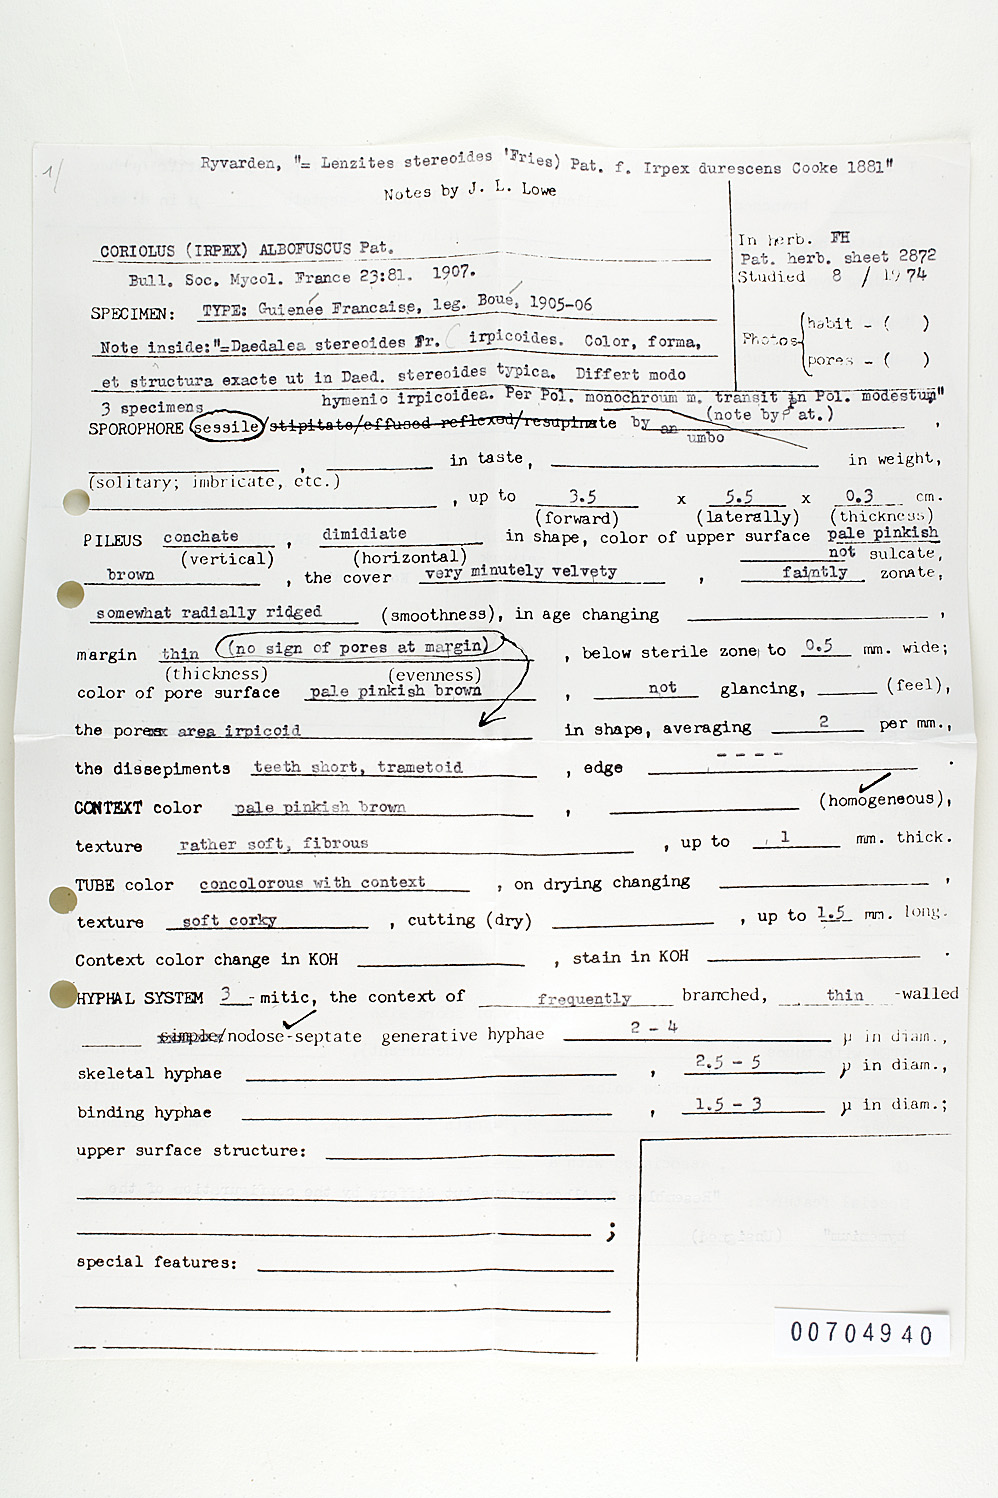 1/
Ryvarden, "= Lenzites stereoides 'Fries) Pat. f. Irpex durescens Cooke 1881"
Notes by J. L. Lowe
CORIOLUS (IRPEX) ALBOFUSCUS Pat.
Bull. Soc. Mycol. France 23:81. 1907.
In herb. FH
Pat. herb. sheet 2872
Studied 8 / 1974
SPECIMEN: TYPE: Guienée Francaise, leg. Boué, 1905-06
Photos (habit - ( )
pores - ( )
Note inside:"=Daedalea stereoides Fr. ( irpicoides. Color, forma,
et structura exacte ut in Daed. stereoides typica. Differt modo
hymenio irpicoidea. Per Pol. monochroum m. transit in Pol. modestum"
3 specimens (note by Pat.)
SPOROPHORE sessile/stipitate/effused reflexed/resupinate by an umbo ,
, in taste, in weight,
(solitary; imbricate, etc.)
, up to 3.5 x 5.5 x 0.3 cm.
(forward) (laterally) (thickness)
PILEUS conchate , dimidiate in shape, color of upper surface pale pinkish
(vertical) (horizontal) not sulcate,
brown , the cover very minutely velvety , faintly zonate,
somewhat radially ridged (smoothness), in age changing ,
margin thin (no sign of pores at margin) , below sterile zone to 0.5 mm. wide;
(thickness) (evenness)
color of pore surface pale pinkish brown , not glancing, (feel),
the pores area irpicoid in shape, averaging 2 per mm.,
the dissepiments teeth short, trametoid , edge - - - - .
CONTEXT color pale pinkish brown , (homogeneous),
texture rather soft, fibrous , up to 1 mm. thick.
TUBE color concolorous with context , on drying changing ,
texture soft corky , cutting (dry) , up to 1.5 mm. long.
Context color change in KOH , stain in KOH .
HYPHAL SYSTEM 3 -mitic, the context of frequently branched, thin -walled
simple/nodose-septate generative hyphae 2 - 4 µ in diam.,
skeletal hyphae , 2.5 - 5 µ in diam.,
binding hyphae , 1.5 - 3 µ in diam.;
upper surface structure:
;
special features:
00704940